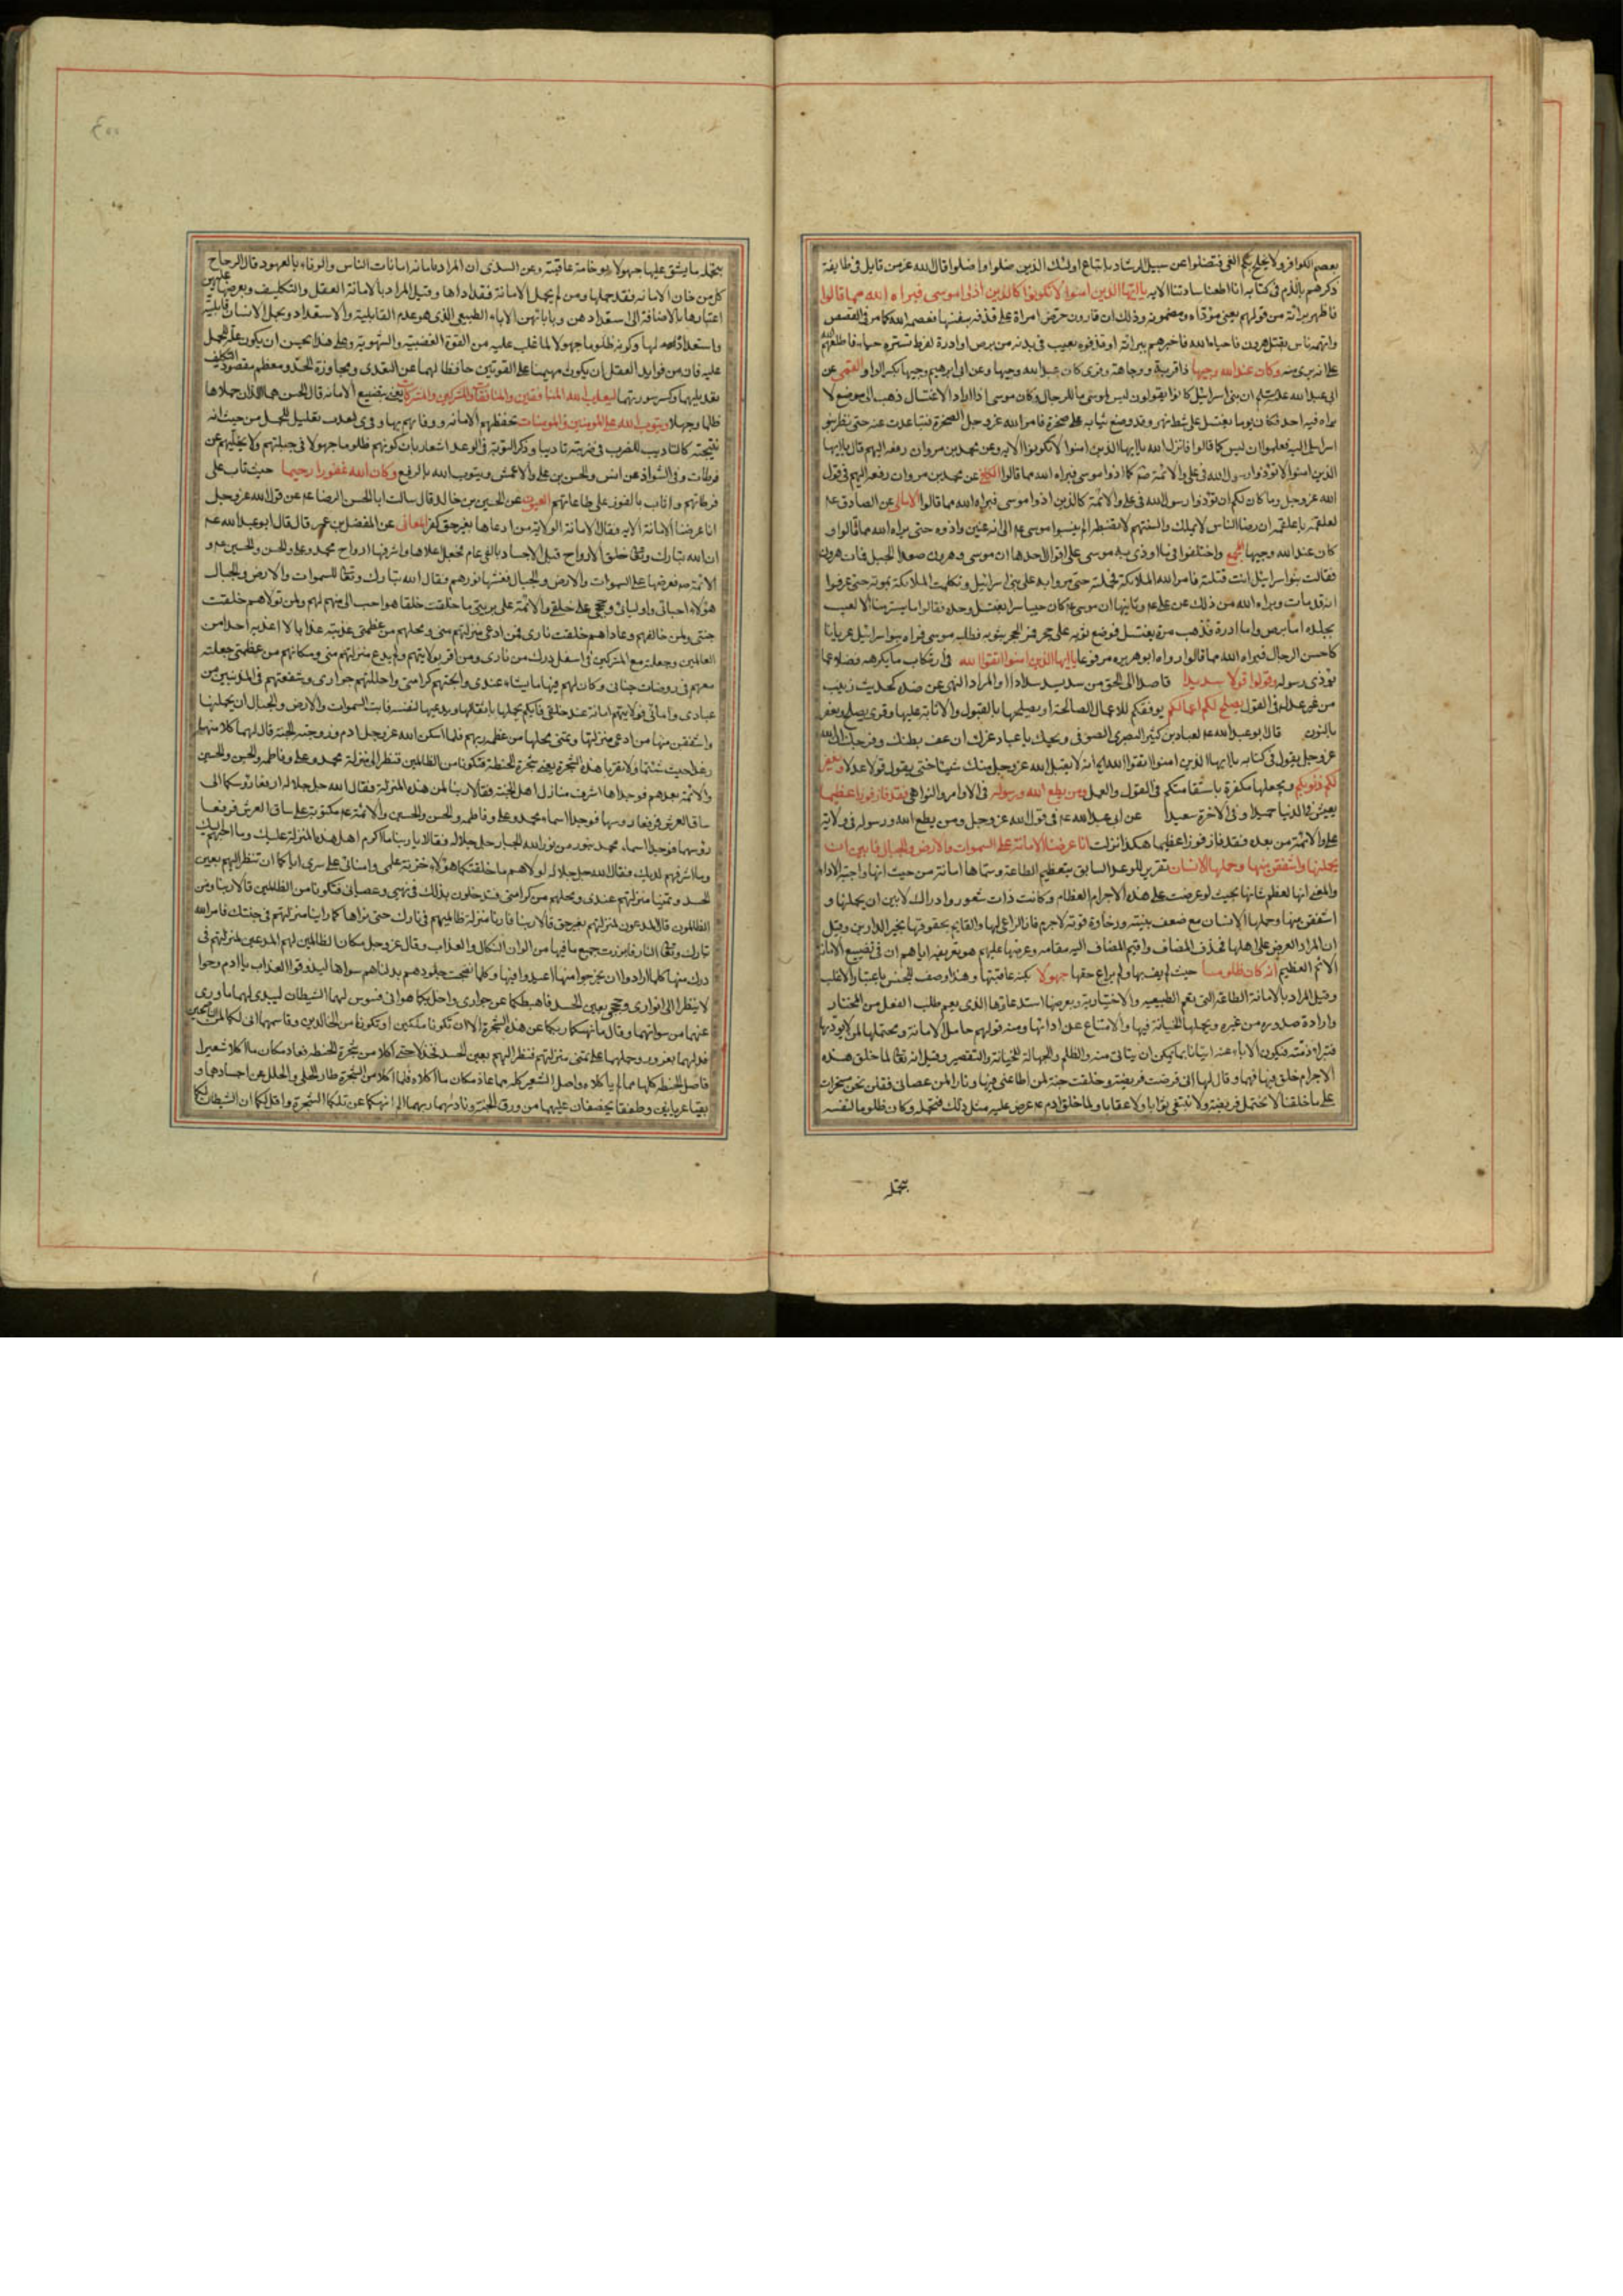 بعصم الكوافر ولا يخلج بكم الغى فتضلوا عن سبيل الرشاد باتباع اولئك الذين ضلوا واضلوا قال الله عز من قايل فى طايفة
ذكرهم بالذم فى كتابه انا اطعنا سادتنا الايه يا ايها الذين امنوا لا تكونوا كالذين اذوا موسى فبراه الله مما قالوا
فاظهر برائة من قولهم يعنى مؤداه ومضمونه وذلك ان قارون حرض امراة على قذفه بنفسها فعصمه الله كما مر فى القصص
واتهمه ناس بقتل هرون فاحياه الله فاخبرهم ببرائته او قذفوه بعيب فى بدنه من برص او ادرة لفرط تستره حياء فاطلعهم الله
على انه برئ منه وكان عند الله وجيها ذا قربة ووجاهة وقرئ كان عبد الله وجيها وعن ابى ابرهيم وجيها بكسر الواو القمى عن
ابى عبد الله ان بنى اسرائيل كانوا يقولون ليس لموسى ما للرجال وكان موسى اذا اراد الاغتسال ذهب الى موضع لا
يراه فيه احد فكان يوما يغتسل على شط نهر وقد وضع ثيابه على صخرة فامر الله عز وجل الصخرة فتباعدت عنه حتى نظر بنو
اسرائيل اليه فعلموا ان ليس كما قالوا فانزل الله يا ايها الذين امنوا لا تكونوا الايه وعن محمد بن مروان رفعه اليهم قال يا ايها
الذين امنوا لا تؤذوا رسول الله فى على والائمة كما اذوا موسى فبراه الله مما قالوا عن محمد بن مروان رفعه اليهم فى قول
الله عز وجل وما كان لكم ان تؤذوا رسول الله فى على والائمة كالذين اذوا موسى فبراه الله مما قالوا الامالى عن الصادق ع
لعلقمة يا علقمة ان رضا الناس لا يملك والسنتهم لا تضبط الم ينسبوا موسى ع الى انه عنين واذوه حتى براه الله مما قالوا و
كان عند الله وجيها المجمع واختلفوا فيما اوذى به موسى على اقوال احدها ان موسى وهرون صعدا الجبل فمات هرون
فقالت بنوا سرائيل انت قتلته فامر الله الملائكة فحملته حتى مروا به على بنى اسرائيل وتكلمت الملائكة بموته حتى عرفوا
انه قد مات وبراه الله من ذلك عن على ع وثانيها ان موسى ع كان حييا ستيرا يغتسل وحده فقالوا ما يستتر منا الا لعيب
بجلده اما برص واما ادرة فذهب مرة يغتسل فوضع ثوبه على حجر فمر الحجر بثوبه فطلبه موسى فراه بنوا سرائيل عريانا
كاحسن الرجال فبراه الله مما قالوا رواه ابو هريره مرفوعا يا ايها الذين امنوا اتقوا الله فى ارتكاب ما يكرهه فضلا عما
يؤذى رسوله وقولوا قولا سديدا قاصدا الى الحق من سد يسد سدادا والمراد النهى عن ضده كحديث زينب
من غير عدل فى القول يصلح لكم اعمالكم يوفقكم للاعمال الصالحة او يصلحها بالقبول والاثابة عليها وقرى يصلح ويغفر
بالنون قال ابو عبد الله ع لعباد بن كثير البصرى الصوفى ويحك يا عباد غرك ان عف بطنك وفرجك ان الله
عز وجل يقول فى كتابه يا ايها الذين امنوا اتقوا الله الايه انه لا يقبل الله عز وجل منك شيئا حتى يقول قولا عدلا ويغفر
لكم ذنوبكم ويجعلها مكفرة باستقامتكم فى القول والعمل ومن يطع الله ورسوله فى الاوامر والنواهى فقد فاز فوزا عظيما
يعيش فى الدنيا حميدا وفى الاخرة سعيدا عن ابى عبد الله ع فى قول الله عز وجل ومن يطع الله ورسوله فى ولاية
على والائمة من بعده فقد فاز فوزا عظيما هكذا نزلت انا عرضنا الامانة على السموات والارض والجبال فابين ان
يحملنها واشفقن منها وحملها الانسان تقرير للوعد السابق بتعظيم الطاعة وسماها امانة من حيث انها واجبة الاداء
والمعنى انها لعظم شانها بحيث لو عرضت على هذه الاجرام العظام وكانت ذات شعور وادراك لابين ان يحملنها و
اشفقن منها وحملها الانسان مع ضعف بنيته ورخاوة قوته لا جرم فاز الراعى لها والقايم بحقوقها بخير الدارين وقيل
ان المراد العرض على اهلها فحذف المضاف واقيم المضاف اليه مقامه وعرضها عليهم هو تعريفه اياهم ان فى تضييع الامانة
الاثم العظيم انه كان ظلوما حيث لم يف بها ولم يراع حقها جهولا بكنه عاقبتها وهذا وصف للجنس باعتبار الاغلب
وقيل المراد بالامانة الطاعة التى تعم الطبيعية والاختيارية وبعرضها استدعاؤها الذى يعم طلب الفعل من المختار
وارادة صدوره من غيره وبحملها الخيانة فيها والامتناع عن ادائها ومنه قولهم حامل الامانة ومحتملها لمن لا يؤديها
فتبرا ذمته فيكون الاباء عنه اتيانا بما يمكن ان يتاتى منه والظلم والجهالة للخيانة والتقصير وقيل انه تعالى لما خلق هذه
الاجرام خلق فيها فهما وقال لها انى فرضت فريضة وخلقت جنة لمن اطاعنى فيها ونارا لمن عصانى فقلن نحن مسخرات
على ما خلقتنا لا نحتمل فريضة ولا نبتغى ثوابا ولا عقابا ولما خلق ادم ع عرض عليه مثل ذلك فتحمله وكان ظلوما لنفسه
بتحمله
بتحمله ما يشق عليها جهولا بوخامة عاقبته وعن السدى ان المراد بامانة امانات الناس والوفاء بالعهود قال الزجاج
كل من خان الامانه فقد حملها ومن لم يحمل الامانة فقد اداها وقيل المراد بالامانة العقل والتكليف وبعرضها عليهن
اعتبارها بالاضافة الى استعدادهن وبابائهن الاباء الطبيعى الذى هو عدم القابلية والاستعداد وبحمل الانسان قابليته
واستعداده لها وكونه ظلوما جهولا لما غلب عليه من القوة الغضبية والشهوية وعلى هذا يحسن ان يكون علة للحمل
عليه فان من فوايد العقل ان يكون مهيمنا على القوتين حافظا لهما عن التعدى ومجاوزة الحد ومعظم مقصود التكليف
تعديلهما وكسر سورتهما ليعذب الله المنافقين والمنافقات والمشركين والمشركات يعنى بتضييع الامانه قال الحسن هما اللذان حملاها
ظلما وجهلا ويتوب الله على المومنين والمومنات بحفظهم الامانه ووفائهم بها وقوى لعذب تعليل للحمل من حيث انه
نتيجته كالتاديب للضرب فى ضربته تاديبا وذكر التوبة فى الوعد اشعار بان كونهم ظلوما جهولا فى جبلتهم لا يخليهم عن
فرطات وفى الشواذ عن انس والحسن بن على والاعمش ويتوب الله بالرفع وكان الله غفورا رحيما حيث تاب على
فرطاتهم واثاب بالفوز على طاعاتهم العيون عن الحسين بن خالد قال سالت ابا الحسن الرضا ع عن قول الله عز وجل
انا عرضنا الامانة الايه فقال الامانة الولاية من ادعاها بغير حق كفر المعانى عن المفضل بن عمر قال قال ابو عبد الله ع
ان الله تبارك وتعالى خلق الارواح قبل الاجساد بالفى عام فجعل اعلاها واشرفها ارواح محمد وعلى والحسن والحسين ع و
الائمة فعرضها على السموات والارض والجبال فغشيها نورهم وقال الله تبارك وتعالى للسموات والارض والجبال
هؤلاء احبائى واوليائى وحججى على خلقى والائمة على بريتى ما خلقت خلقا هو احب الى منهم لهم ولمن تولاهم خلقت
جنتى ولمن خالفهم وعاداهم خلقت نارى فمن ادعى منزلتهم منى ومحلهم من عظمتى عذبته عذابا لا اعذبه احدا من
العالمين وجعلته مع المشركين فى اسفل درك من نارى ومن اقر بولايتهم ولم يدع منزلتهم منى ومكانهم من عظمتى جعلته
معهم فى روضات جناتى وكان لهم فيها ما يشاء عندى وابحتهم كرامتى واحللتهم جوارى وشفعتهم فى المذنبين من
عبادى وامائى فولايتهم امانة عند خلقى فايكم يحملها باثقالها ويدعيها لنفسه فابت السموات والارض والجبال ان يحملنها
واشفقن منها من ادعى منزلتها وتمنى محلها من عظمه ربهم فلما اسكن الله عز وجل ادم وزوجته الجنة قال لهما كلا منها
رغدا حيث شئتما ولا تقربا هذه الشجرة يعنى شجرة الحنطة فتكونا من الظالمين فنظرا الى منزلة محمد وعلى وفاطمه والحسن والحسين
والائمة بعدهم فوجداها اشرف منازل اهل الجنة فقالا ربنا لمن هذه المنزلة فقال الله جل جلاله ارفعا رؤسكما الى
ساق العرش فرفعا رؤسهما فوجدا اسماء محمد وعلى وفاطمه والحسن والحسين والائمة ع مكتوبة على ساق العرش فرفعا
رؤسهما فوجدا اسماء محمد بنور من نور الله الجبار جل جلاله فقالا يا ربنا ما اكرم اهل هذه المنزلة عليك وما احبهم اليك
وما اشرفهم لديك فقال الله جل جلاله لولاهم ما خلقتكما هؤلاء خزنة علمى وامنائى على سرى اياكما ان تنظرا اليهم بعين
الحسد وتتمنيا منزلتهم عندى ومحلهم من كرامتى فتدخلون بذلك فى نهيى وعصيانى فتكونا من الظالمين قالا ربنا ومن
الظالمون قال المدعون لمنزلتهم بغير حق قالا ربنا فارنا منزلة ظالميهم فى نارك حتى نراها كما راينا منزلتهم فى جنتك فامر الله
تبارك وتعالى النار فابرزت جميع ما فيها من الوان النكال والعذاب وقال عز وجل مكان الظالمين لهم المدعين لمنزلتهم فى
درك منها كلما ارادوا ان يخرجوا منها اعيدوا فيها وكلما نضجت جلودهم بدلناهم سواها ليذوقوا العذاب يا ادم وحوا
لا تنظرا الى انوارى وحججى بعين الحسد فاهبطكما عن جوارى واحل بكما هوانى فوسوس لهما الشيطان ليبدى لهما ما ورى
عنهما من سواتهما وقال ما نهيكما ربكما عن هذه الشجرة الا ان تكونا ملكين او تكونا من الخالدين وقاسمهما انى لكما لمن الناصحين
فدليهما بغرور وحملهما على تمنى منزلتهم فنظرا اليهم بعين الحسد فخذلا حتى اكلا من شجرة الحنطه فعاد مكان ما اكلا شعيرا
فاصل الحنطه كلها مما لم ياكلاه واصل الشعير كله مما عاد مكان ما اكلاه فلما اكلا من الشجرة طار الحلى والحلل عن اجسادهما و
بقيا عريانين وطفقا يخصفان عليهما من ورق الجنة ونادىهما ربهما الم انهكما عن تلكما الشجرة واقل لكما ان الشيطان لكما